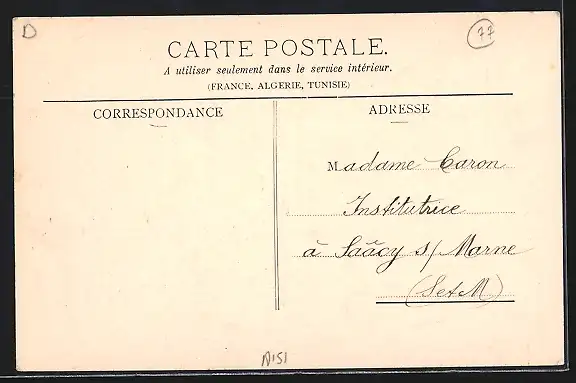 D
77
CARTE POSTALE.
A utiliser seulement dans le service intérieur.
(FRANCE, ALGERIE, TUNISIE)
CORRESPONDANCE
ADRESSE
Madame Caron
Institutrice
à Saâcy s/ Marne
(S et M)
A151